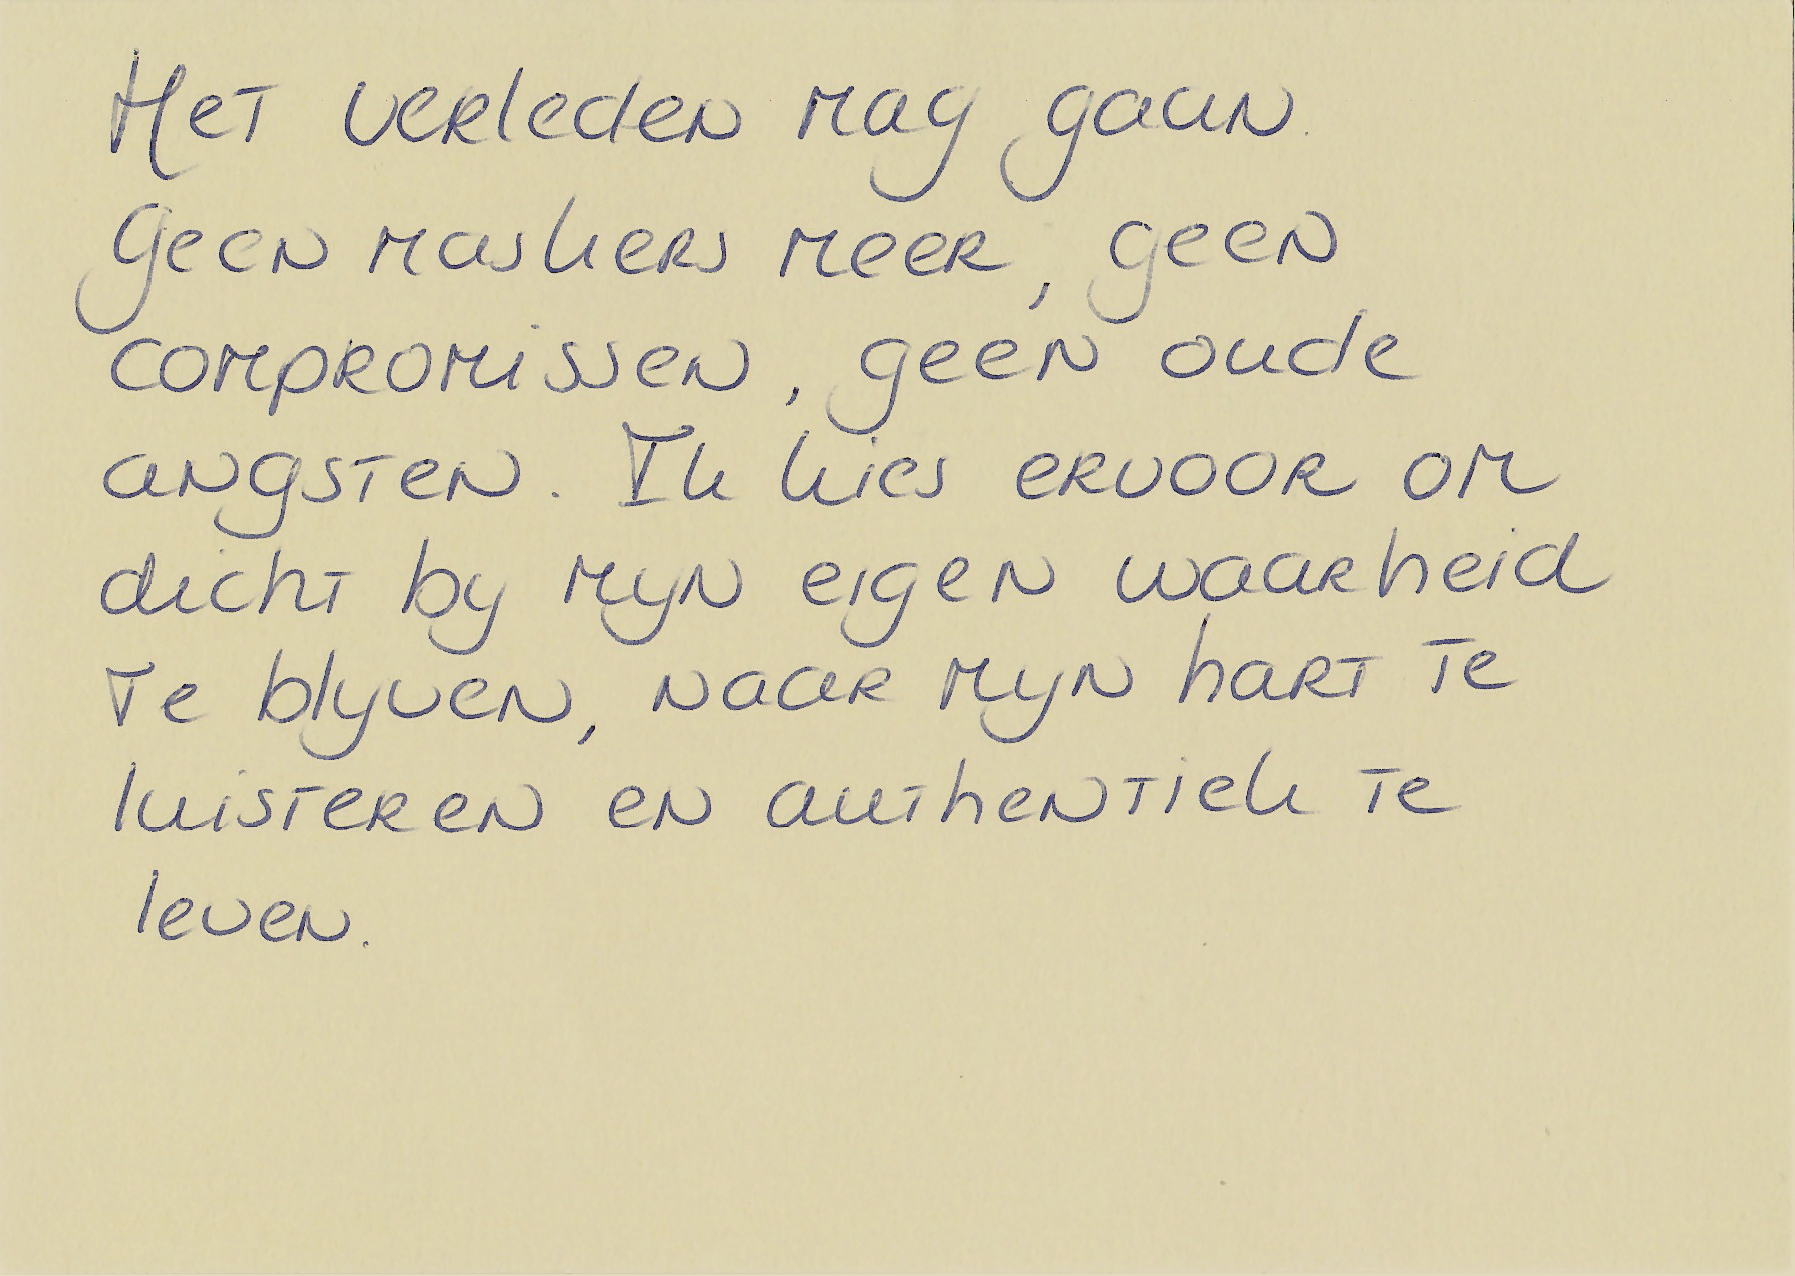 Het verleden mag gaan.
Geen maskers meer, geen
compromissen, geen oude
angsten. Ik kies ervoor om
dicht bij mijn eigen waarheid
te blijven, naar mijn hart te
luisteren en authentiek te
leven.